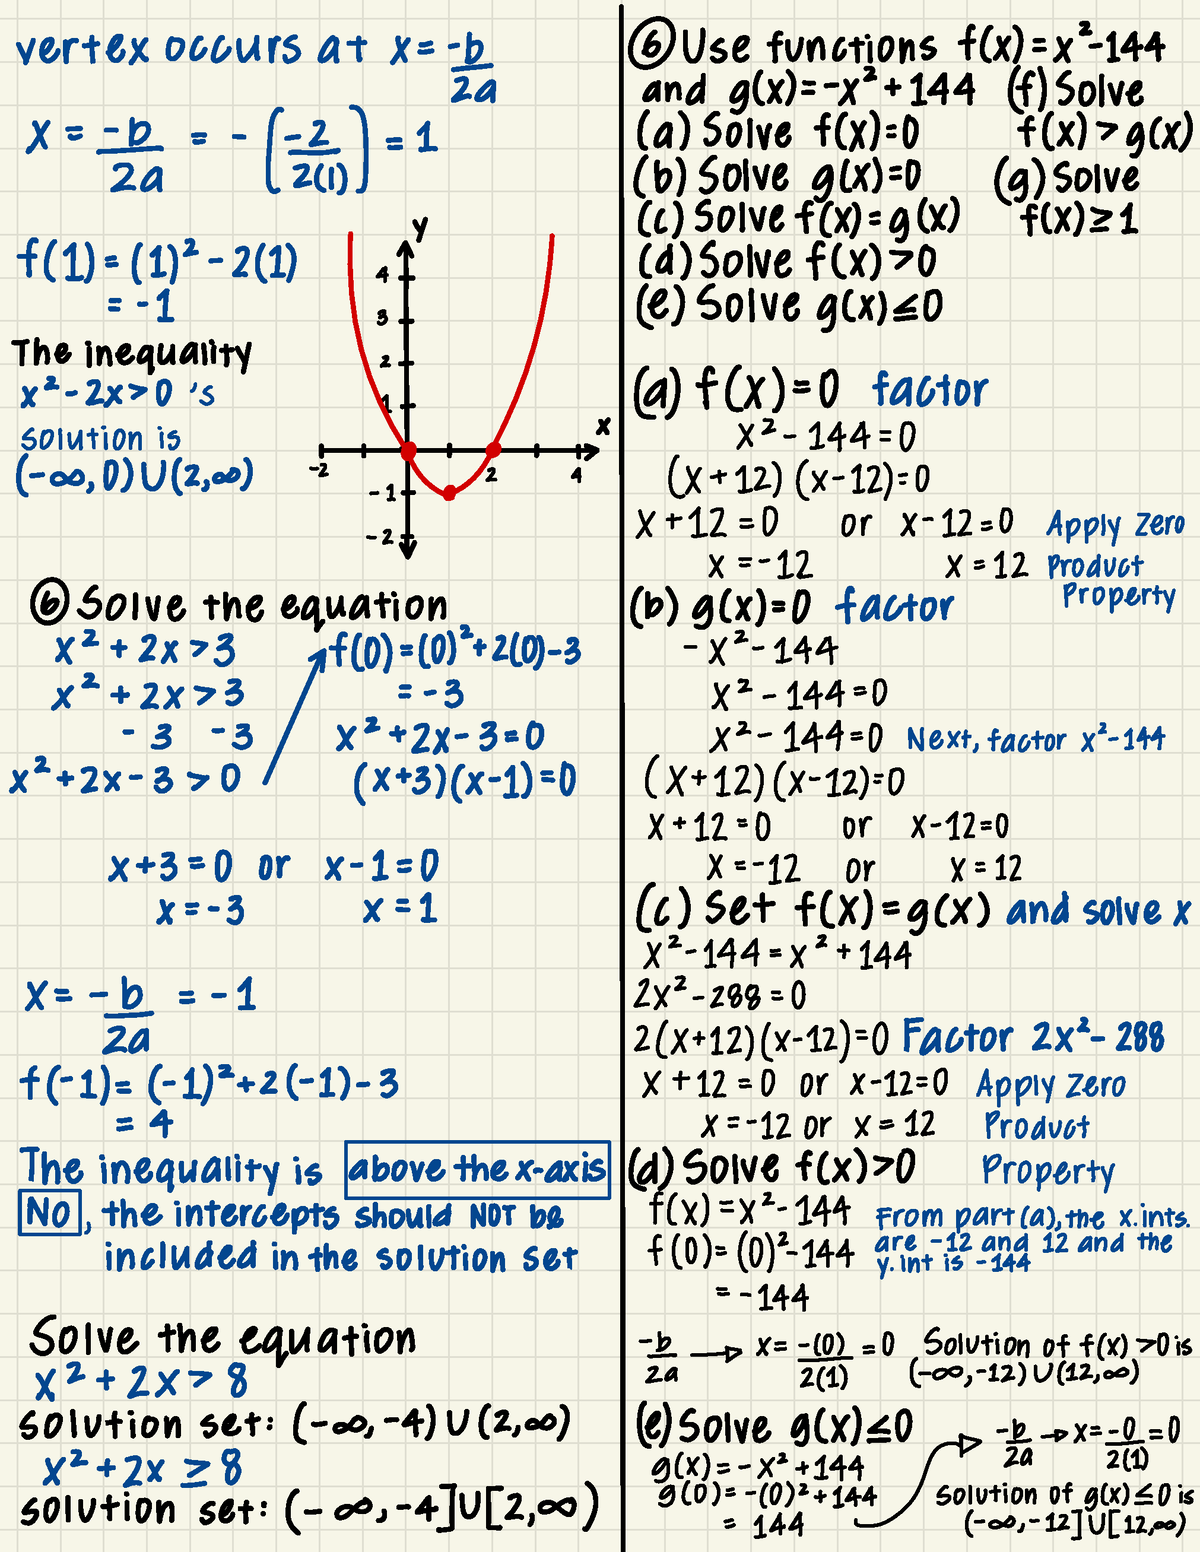 vertex occurs at x = -b/2a
x = -b/2a = - (-2/2(1)) = 1
f(1) = (1)² - 2(1)
= -1
The inequality
x² - 2x > 0 's
solution is
(-∞, 0) U (2, ∞)
y
4
3
2
1
x
-2
2
4
-1
-2
⑥ Solve the equation
x² + 2x > 3
x² + 2x > 3
- 3 -3
x² + 2x - 3 > 0
f(0) = (0)² + 2(0) - 3
= -3
x² + 2x - 3 = 0
(x+3)(x-1) = 0
x + 3 = 0 or x - 1 = 0
x = -3 x = 1
x = -b/2a = -1
f(-1) = (-1)² + 2(-1) - 3
= 4
The inequality is above the x-axis
NO, the intercepts should NOT be
included in the solution set
Solve the equation
x² + 2x > 8
solution set: (-∞, -4) U (2, ∞)
x² + 2x ≥ 8
solution set: (-∞, -4] U [2, ∞)
⑥ Use functions f(x) = x² - 144
and g(x) = -x² + 144 (f) Solve
(a) Solve f(x) = 0 f(x) > g(x)
(b) Solve g(x) = 0 (g) Solve
(c) Solve f(x) = g(x) f(x) ≥ 1
(d) Solve f(x) > 0
(e) Solve g(x) ≤ 0
(a) f(x) = 0 factor
x² - 144 = 0
(x + 12) (x - 12) = 0
x + 12 = 0 or x - 12 = 0 Apply Zero
x = -12 x = 12 Product
Property
(b) g(x) = 0 factor
- x² - 144
x² - 144 = 0
x² - 144 = 0 Next, factor x² - 144
(x + 12) (x - 12) = 0
x + 12 = 0 or x - 12 = 0
x = -12 or x = 12
(c) Set f(x) = g(x) and solve x
x² - 144 = x² + 144
2x² - 288 = 0
2(x+12)(x-12) = 0 Factor 2x² - 288
x + 12 = 0 or x - 12 = 0 Apply Zero
x = -12 or x = 12 Product
(d) Solve f(x) > 0 Property
f(x) = x² - 144 From part (a), the x.ints.
f(0) = (0)² - 144 are -12 and 12 and the
y.int is -144
= -144
-b/2a → x = -(0)/2(1) = 0 Solution of f(x) > 0 is
(-∞, -12) U (12, ∞)
(e) Solve g(x) ≤ 0
-b/2a → x = -0/2(1) = 0
g(x) = - x² + 144
g(0) = -(0)² + 144 Solution of g(x) ≤ 0 is
= 144 (-∞, -12] U [12, ∞)